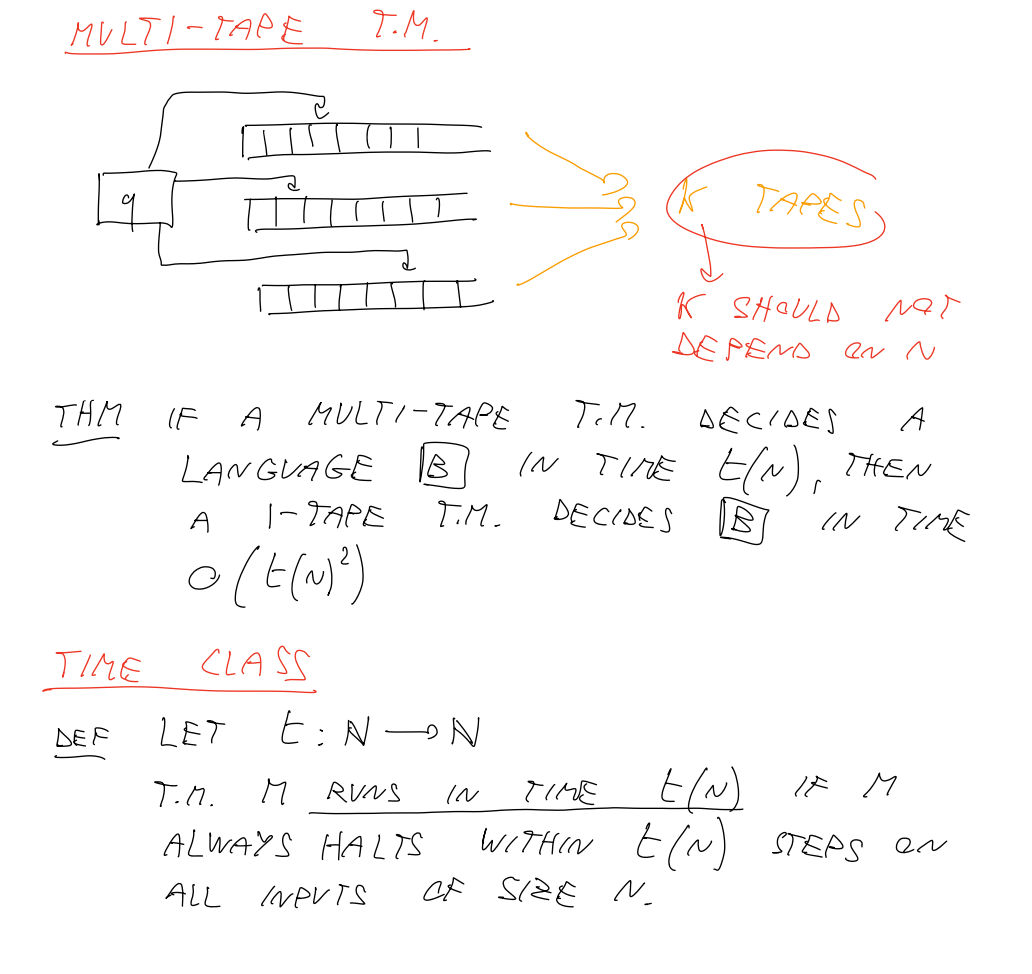 MULTI-TAPE T.M.
q
K TAPES
K SHOULD NOT
DEPEND ON N
THM IF A MULTI-TAPE T.M. DECIDES A
LANGUAGE B IN TIME t(N), THEN
A 1-TAPE T.M. DECIDES B IN TIME
O(t(N)²)
TIME CLASS
DEF LET t : ℕ → ℕ
T.M. M RUNS IN TIME t(N) IF M
ALWAYS HALTS WITHIN t(N) STEPS ON
ALL INPUTS OF SIZE N.